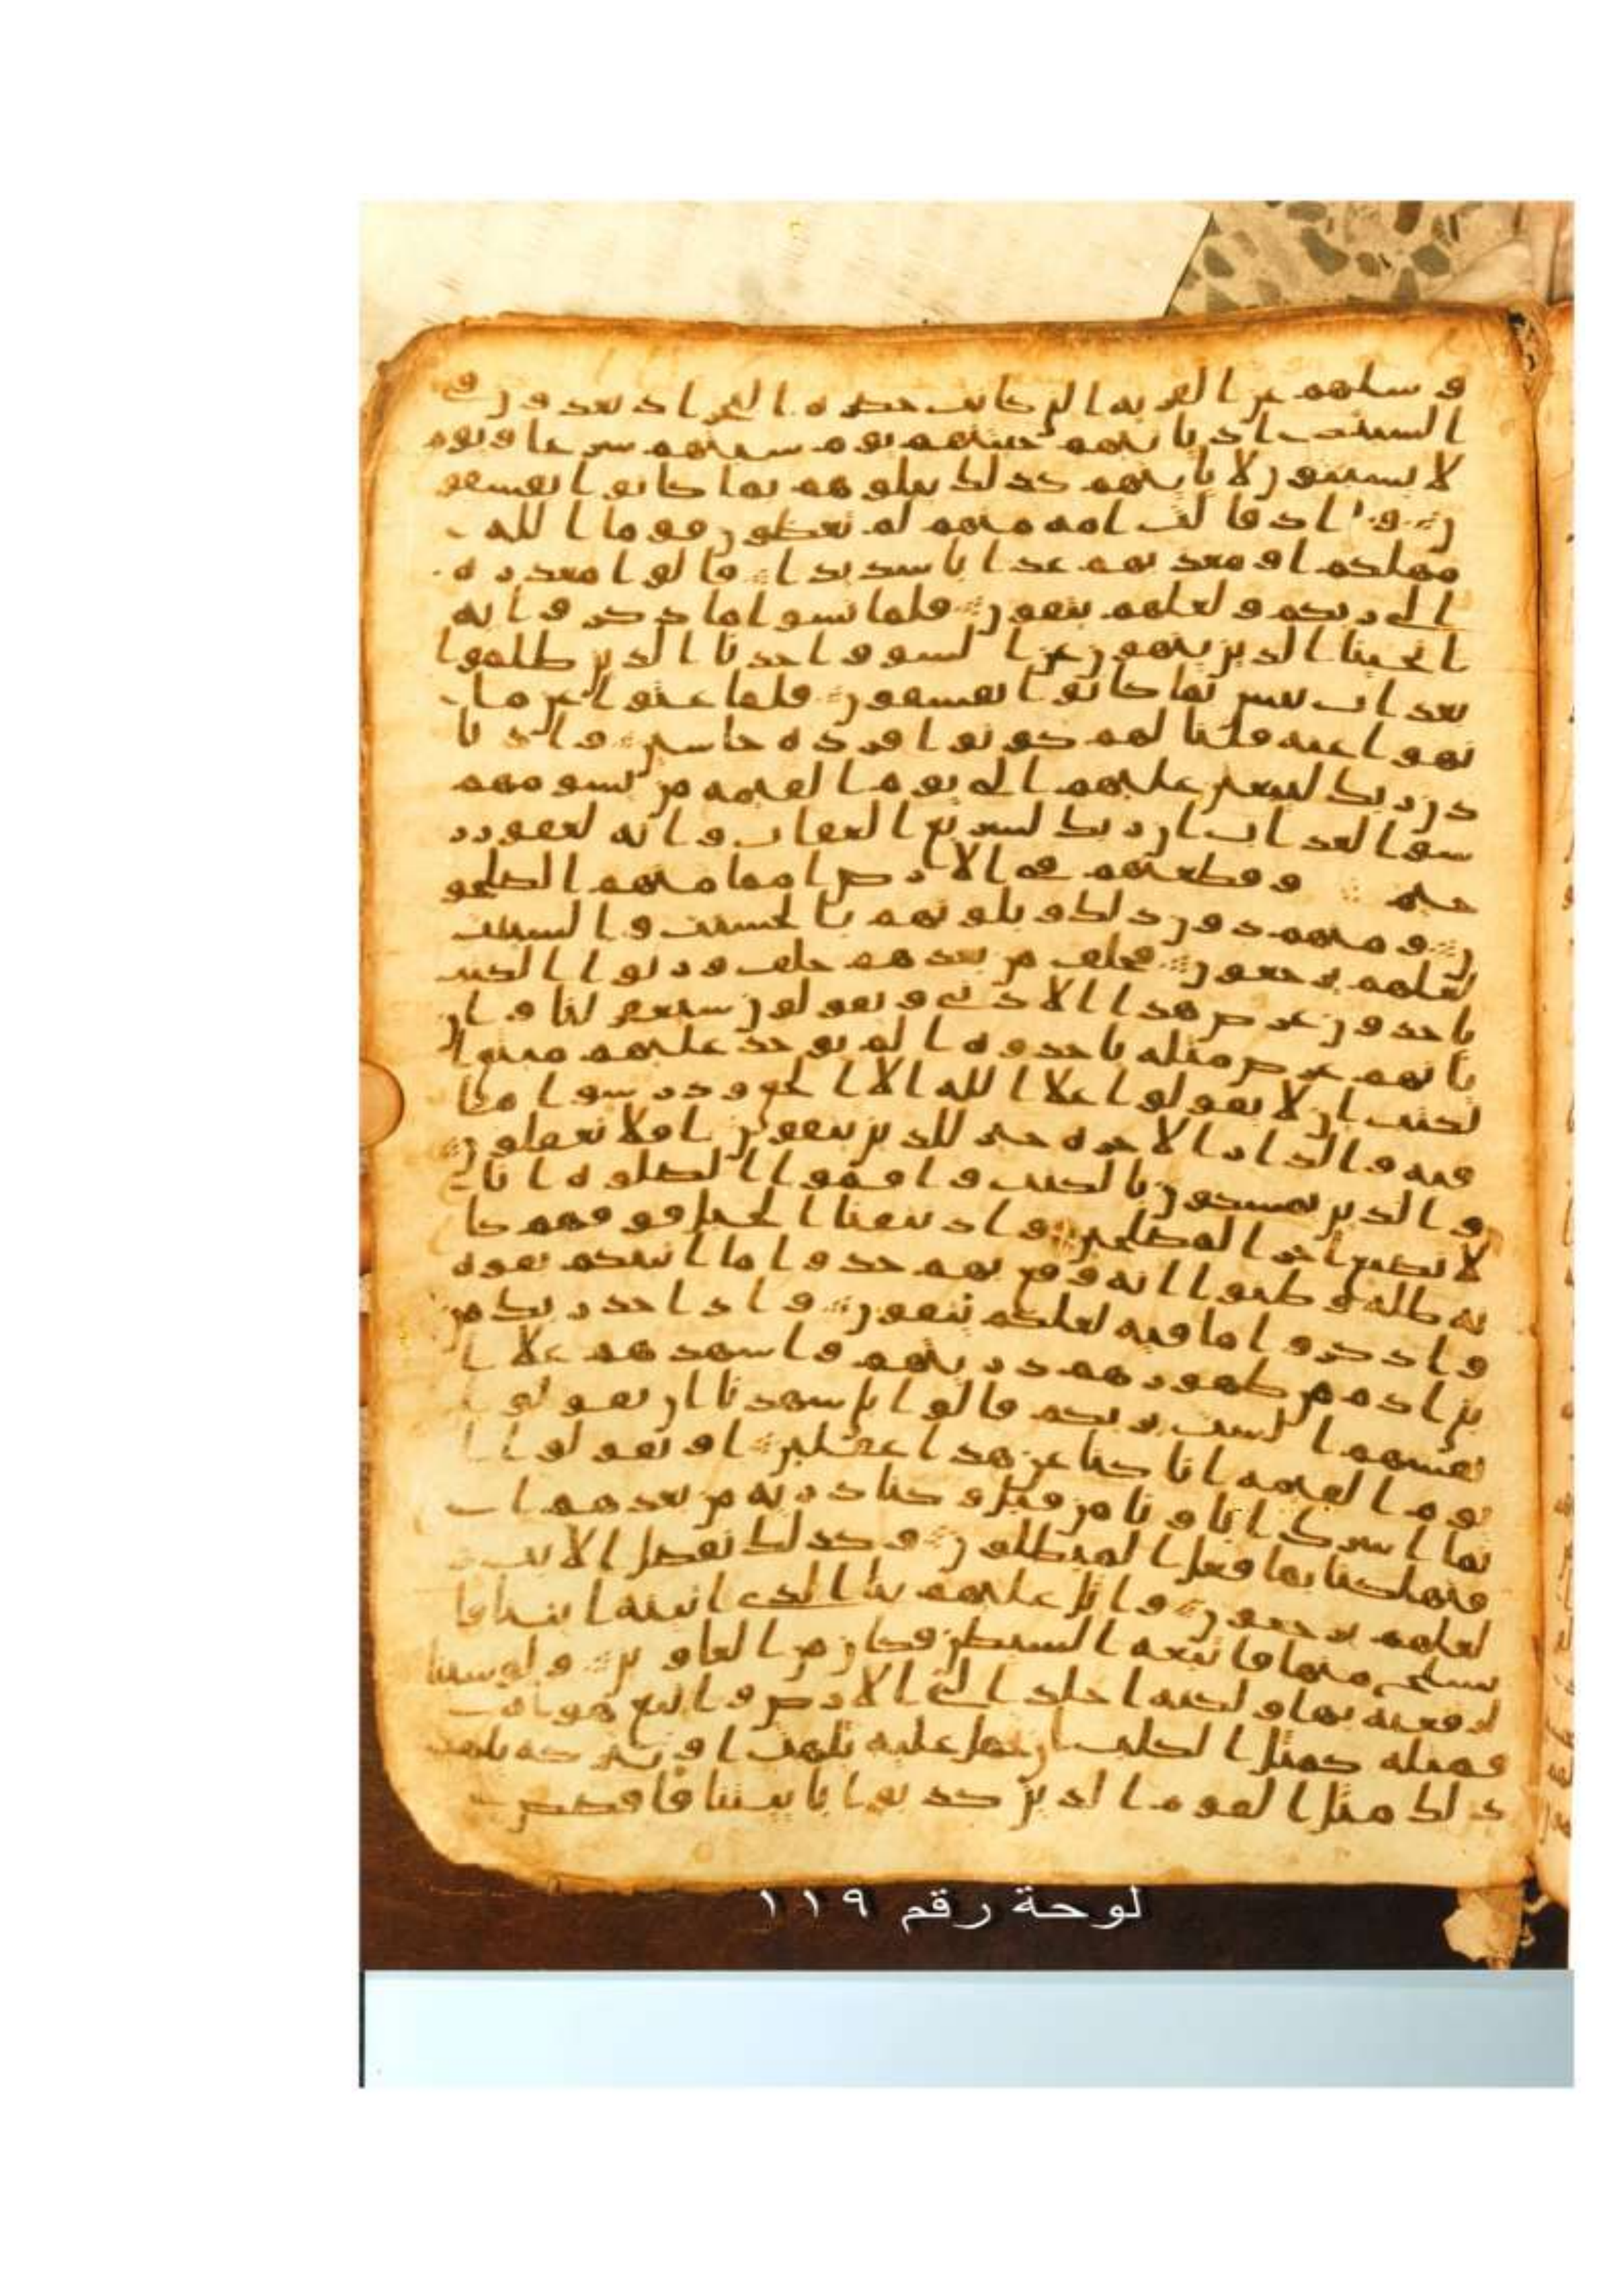 وسلهم عن القريه التي كانت حضره البحر اذ يعدون في
السبت اذ تاتيهم حيتنهم يوم سبتهم شرعا ويوم
لا يسبتون لا تاتيهم كذلك نبلوهم بما كانوا يفسقو
ن واذ قالت امه منهم لم تعظون قوما الله
مهلكهم او معذبهم عذابا شديدا قالوا معذره
الى ربكم ولعلهم يتقون فلما نسوا ما ذكروا به
انجينا الذين ينهون عن السوو اخذنا الذين ظلموا
بعذاب بيس بما كانوا يفسقون فلما عتوا عن ما
نهوا عنه قلنا لهم كونوا قرده خاسين واذ تا
ذن ربك ليبعثن عليهم الى يوم القيمه من يسومهم
سو العذاب ان ربك لسريع العقاب وانه لغفور ر
حيم وقطعنهم في الارض امما منهم الصلحو
ن ومنهم دون ذلك وبلونهم بالحسنت والسيت
لعلهم يرجعون فخلف من بعدهم خلف ورثوا الكتب
ياخذون عرض هذا الادنى ويقولون سيغفر لنا وان
ياتهم عرض مثله ياخذوه الم يوخذ عليهم ميثق ا
لكتب ان لا يقولوا علا الله الا الحق ودرسوا ما
فيه والدار الاخره خير للذين يتقون افلا تعقلون
والذين يمسكون بالكتب واقموا الصلوه انا
لا نضيع اجر المصلحين واذ نتقنا الجبل فوقهم كا
نه ظله وظنوا انه وقع بهم خذوا ما اتينكم بقوه
واذكروا ما فيه لعلكم تتقون واذ اخذ ربك من
بني ادم من ظهورهم ذريتهم واشهدهم علا ا
نفسهم الست بربكم قالوا بلى شهدنا ان يقولوا
يوم القيمه انا كنا عن هذا غفلين او تقولوا ا
نما اشرك اباونا من قبل وكنا ذريه من بعدهم ا
فتهلكنا بما فعل المبطلون وكذلك نفصل الايت و
لعلهم يرجعون واتل عليهم نبا الذي اتينه ايتنا فا
نسلخ منها فاتبعه الشيطن فكان من الغاوين ولو شينا
لرفعنه بها ولكنه اخلد الى الارض واتبع هواه
فمثله كمثل الكلب ان تحمل عليه يلهث او تتركه يلهث
ذلك مثل القوم الذين كذبوا باييتنا فاقصص
لوحة رقم ١١٩